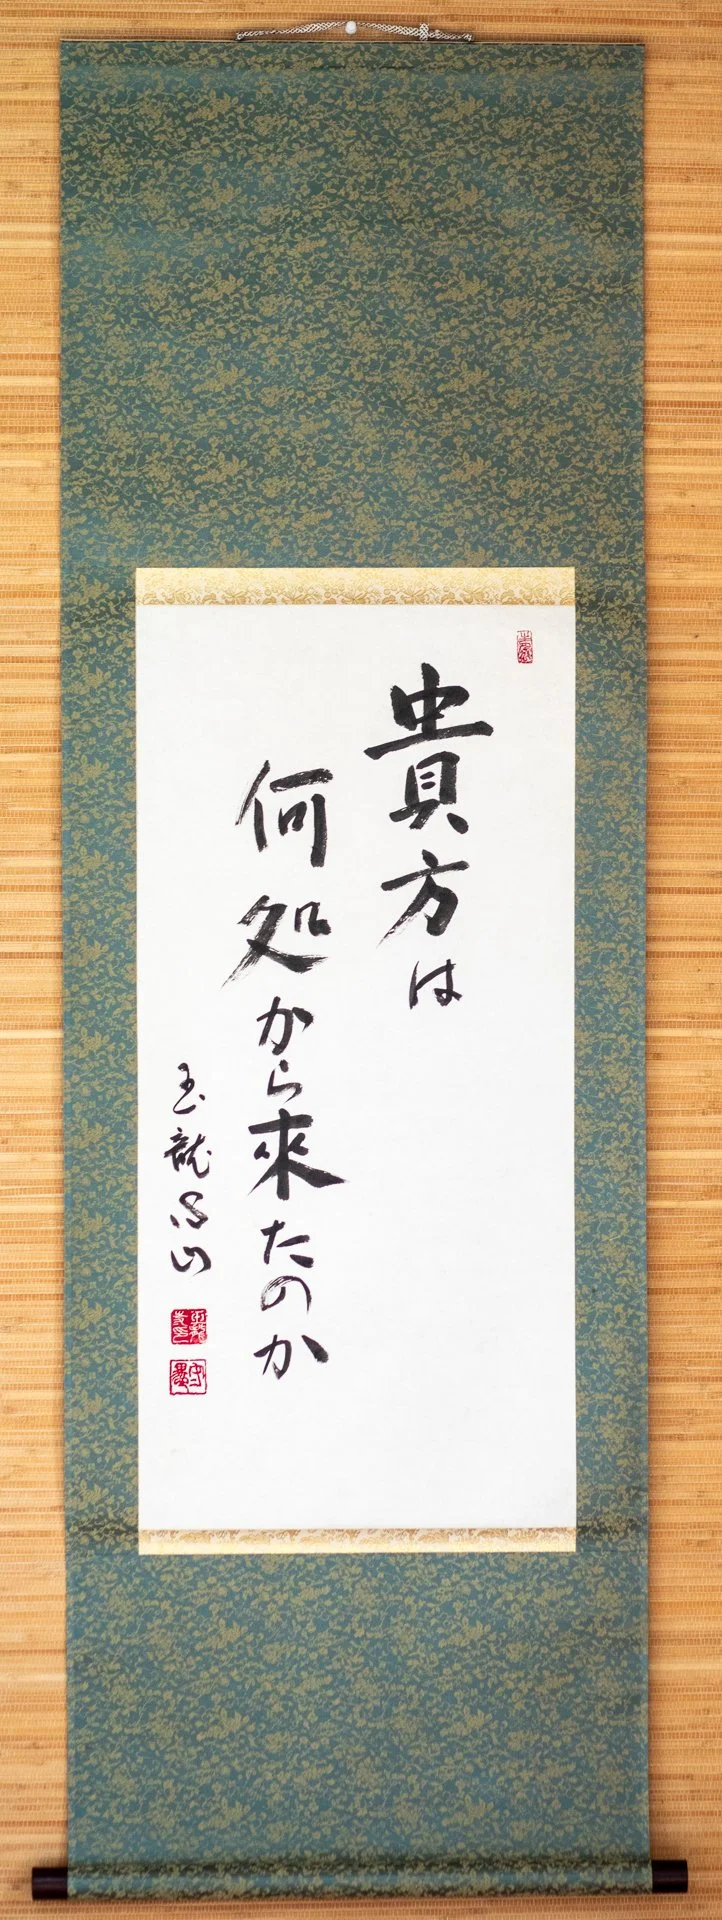 貴方は
何処から來たのか
玉龍